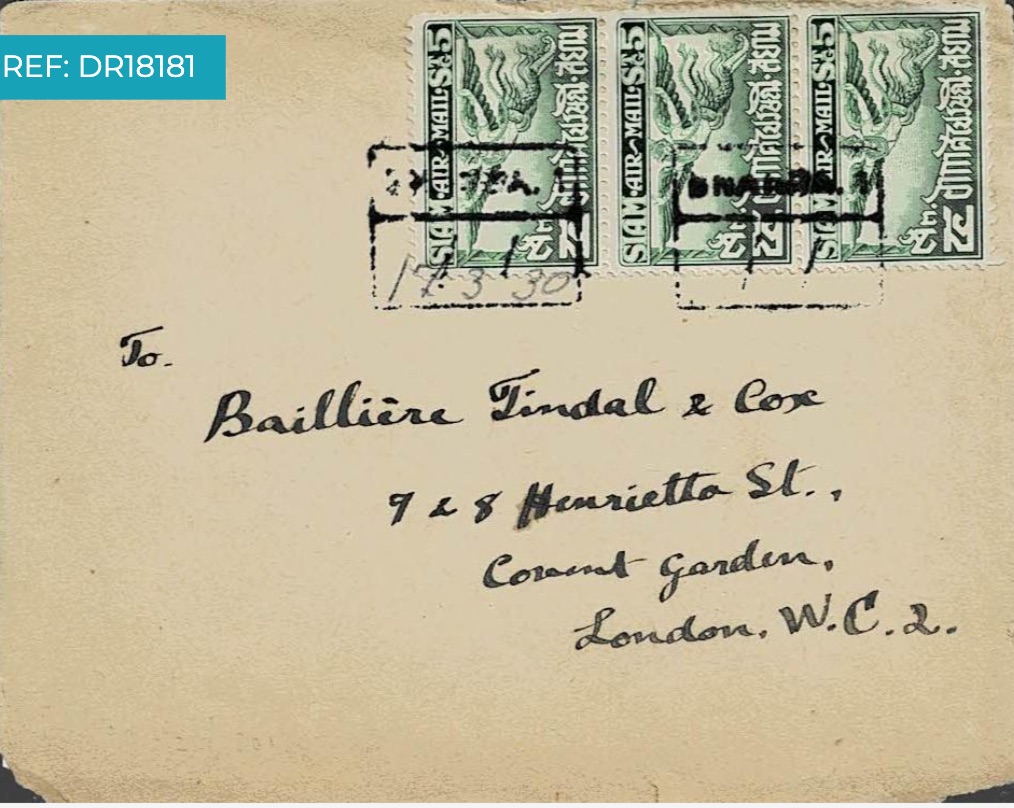 REF: DR18181
SIAM·AIR MAIL·St 5
อากาศไปรษณีย์·สยาม
SIAM·AIR MAIL·St 5
อากาศไปรษณีย์·สยาม
SIAM·AIR MAIL·St 5
อากาศไปรษณีย์·สยาม
17-3-30
To.
Baillière Tindal & Cox
7 & 8 Henrietta St.,
Covent Garden,
London. W.C.2.